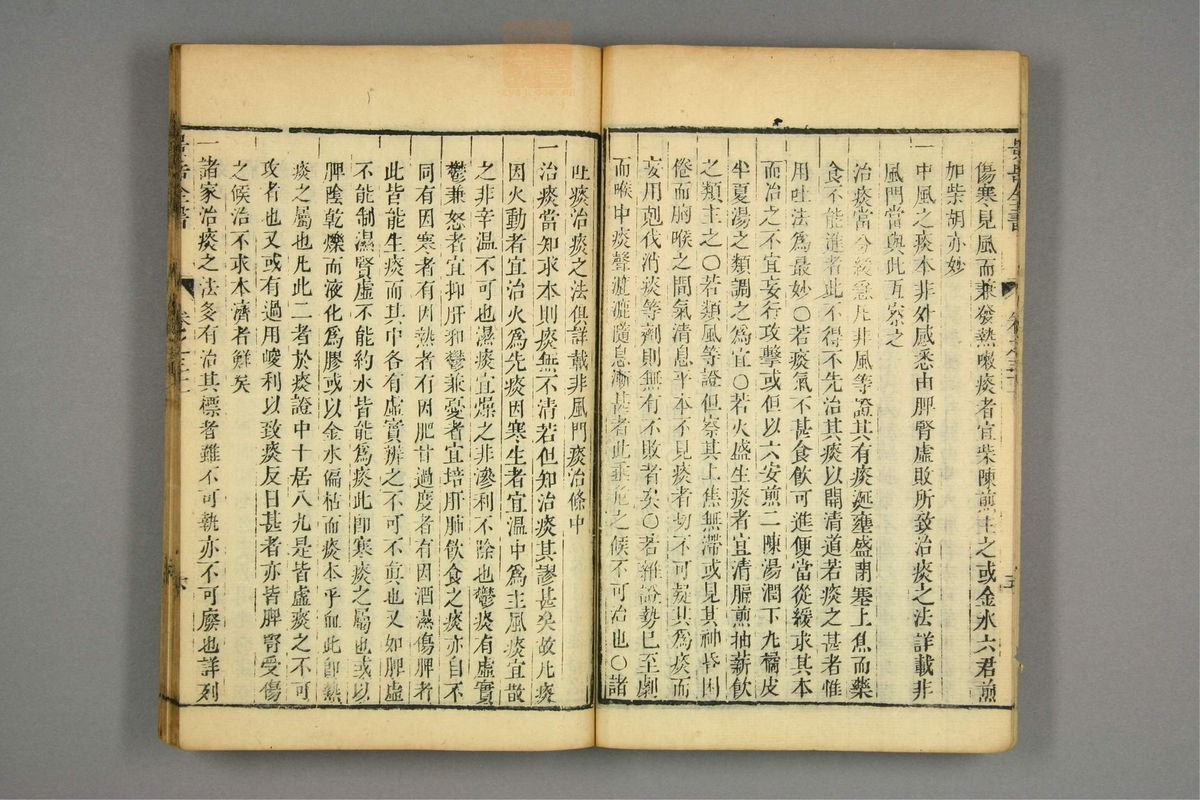 傷寒見風而兼發熱嗽痰者宜柴陳煎主之或金水六君煎
加柴胡亦妙
一中風之痰本非外感悉由脾腎虛敗所致治痰之法詳載非
風門當與此互察之
治痰當分緩急凡非風等證其有痰涎壅盛閉塞上焦而藥
食不能進者此不得不先治其痰以開清道若痰之甚者惟
用吐法爲最妙○若痰氣不甚食飲可進便當從緩求其本
而治之不宜妄行攻擊或但以六安煎二陳湯潤下丸橘皮
半夏湯之類調之爲宜○若火盛生痰者宜清膈煎抽薪飲
之類主之○若類風等證但察其上焦無滯或見其神昏困
倦而胸喉之間氣清息平本不見痰者切不可疑其爲痰而
妄用剋伐消痰等劑則無有不敗者矣○若雜證勢已至劇
而喉中痰聲漉漉隨息漸甚者此垂危之候不可治也○諸
吐痰治痰之法俱詳載非風門痰治條中
一治痰當知求本則痰無不清若但知治痰其謬甚矣故凡痰
因火動者宜治火爲先痰因寒生者宜溫中爲主風痰宜散
之非辛溫不可也濕痰宜燥之非滲利不除也鬱痰有虛實
鬱兼怒者宜抑肝邪鬱兼憂者宜培肝肺飲食之痰亦自不
同有因寒者有因熱者有因肥甘過度者有因酒濕傷脾者
此皆能生痰而其中各有虛實辨之不可不真也又如脾虛
不能制濕腎虛不能約水皆能爲痰此即寒痰之屬也或以
脾陰乾爍而液化爲膠或以金水偏枯而痰本乎血此即熱
痰之屬也凡此二者於痰證中十居八九是皆虛痰之不可
攻者也又或有過用峻利以致痰反日甚者亦皆脾腎受傷
之候治不求本濟者鮮矣
一諸家治痰之法多有治其標者雖不可執亦不可廢也詳列
景岳全書
六